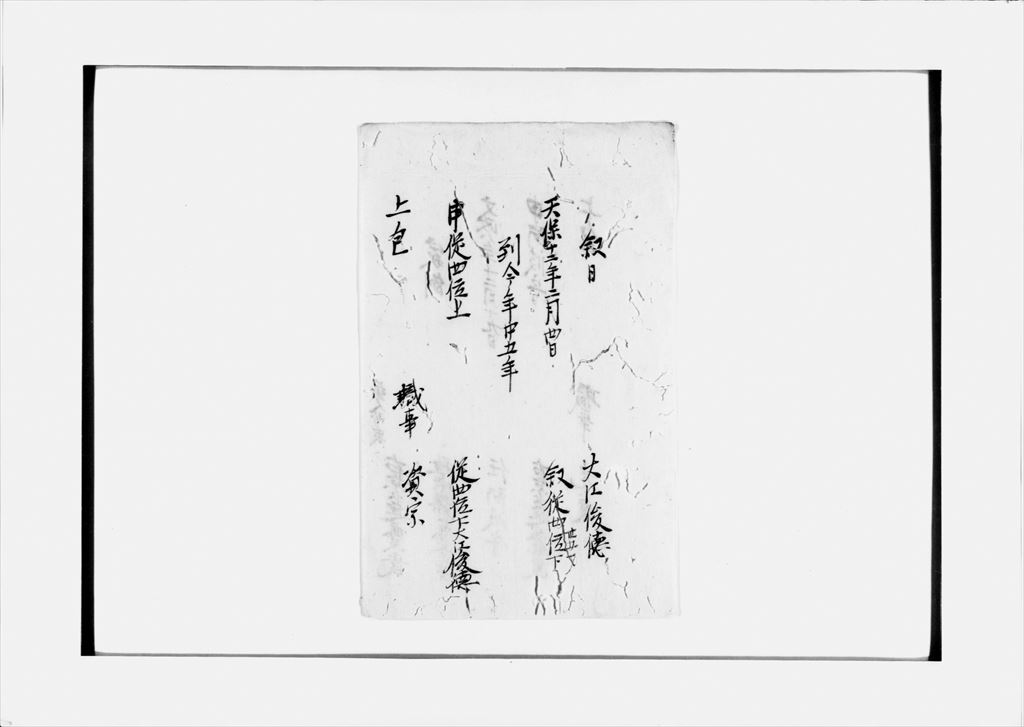 叙日 大江俊徳
天保十二年二月四日 叙従四位下
到今年中五年
申従四位上 従四位下大江俊徳
上包 職事 資宗